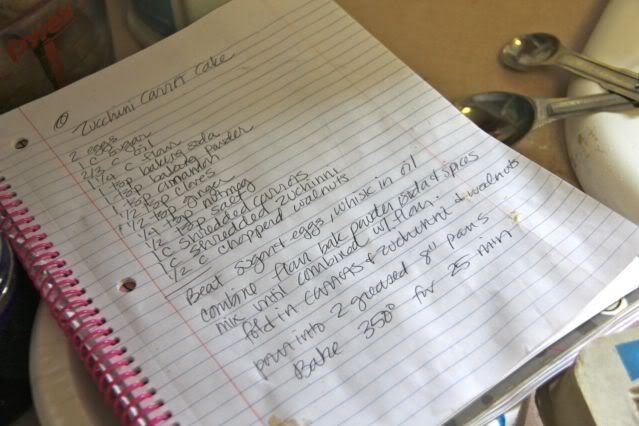 pyrex
Zucchini Carrot Cake
2 eggs
1 c sugar
2/3 c oil
1 1/4 c flour
1 tsp baking soda
1 tsp baking powder
1 tsp
1/2 tsp cloves
1/2 tsp ginger
1/4 tsp nutmeg
1/2 tsp salt
1 c shredded carrots
1 c shredded zucchini
1/2 c chopperd walnuts
Beat sugar + eggs, whisk in oil
combine flour bak powder soda + spices
mix until combined w/ flour.
fold in carrots + zucchini + walnuts
pour into 2 greased 8" pans
Bake 350° for 25 min